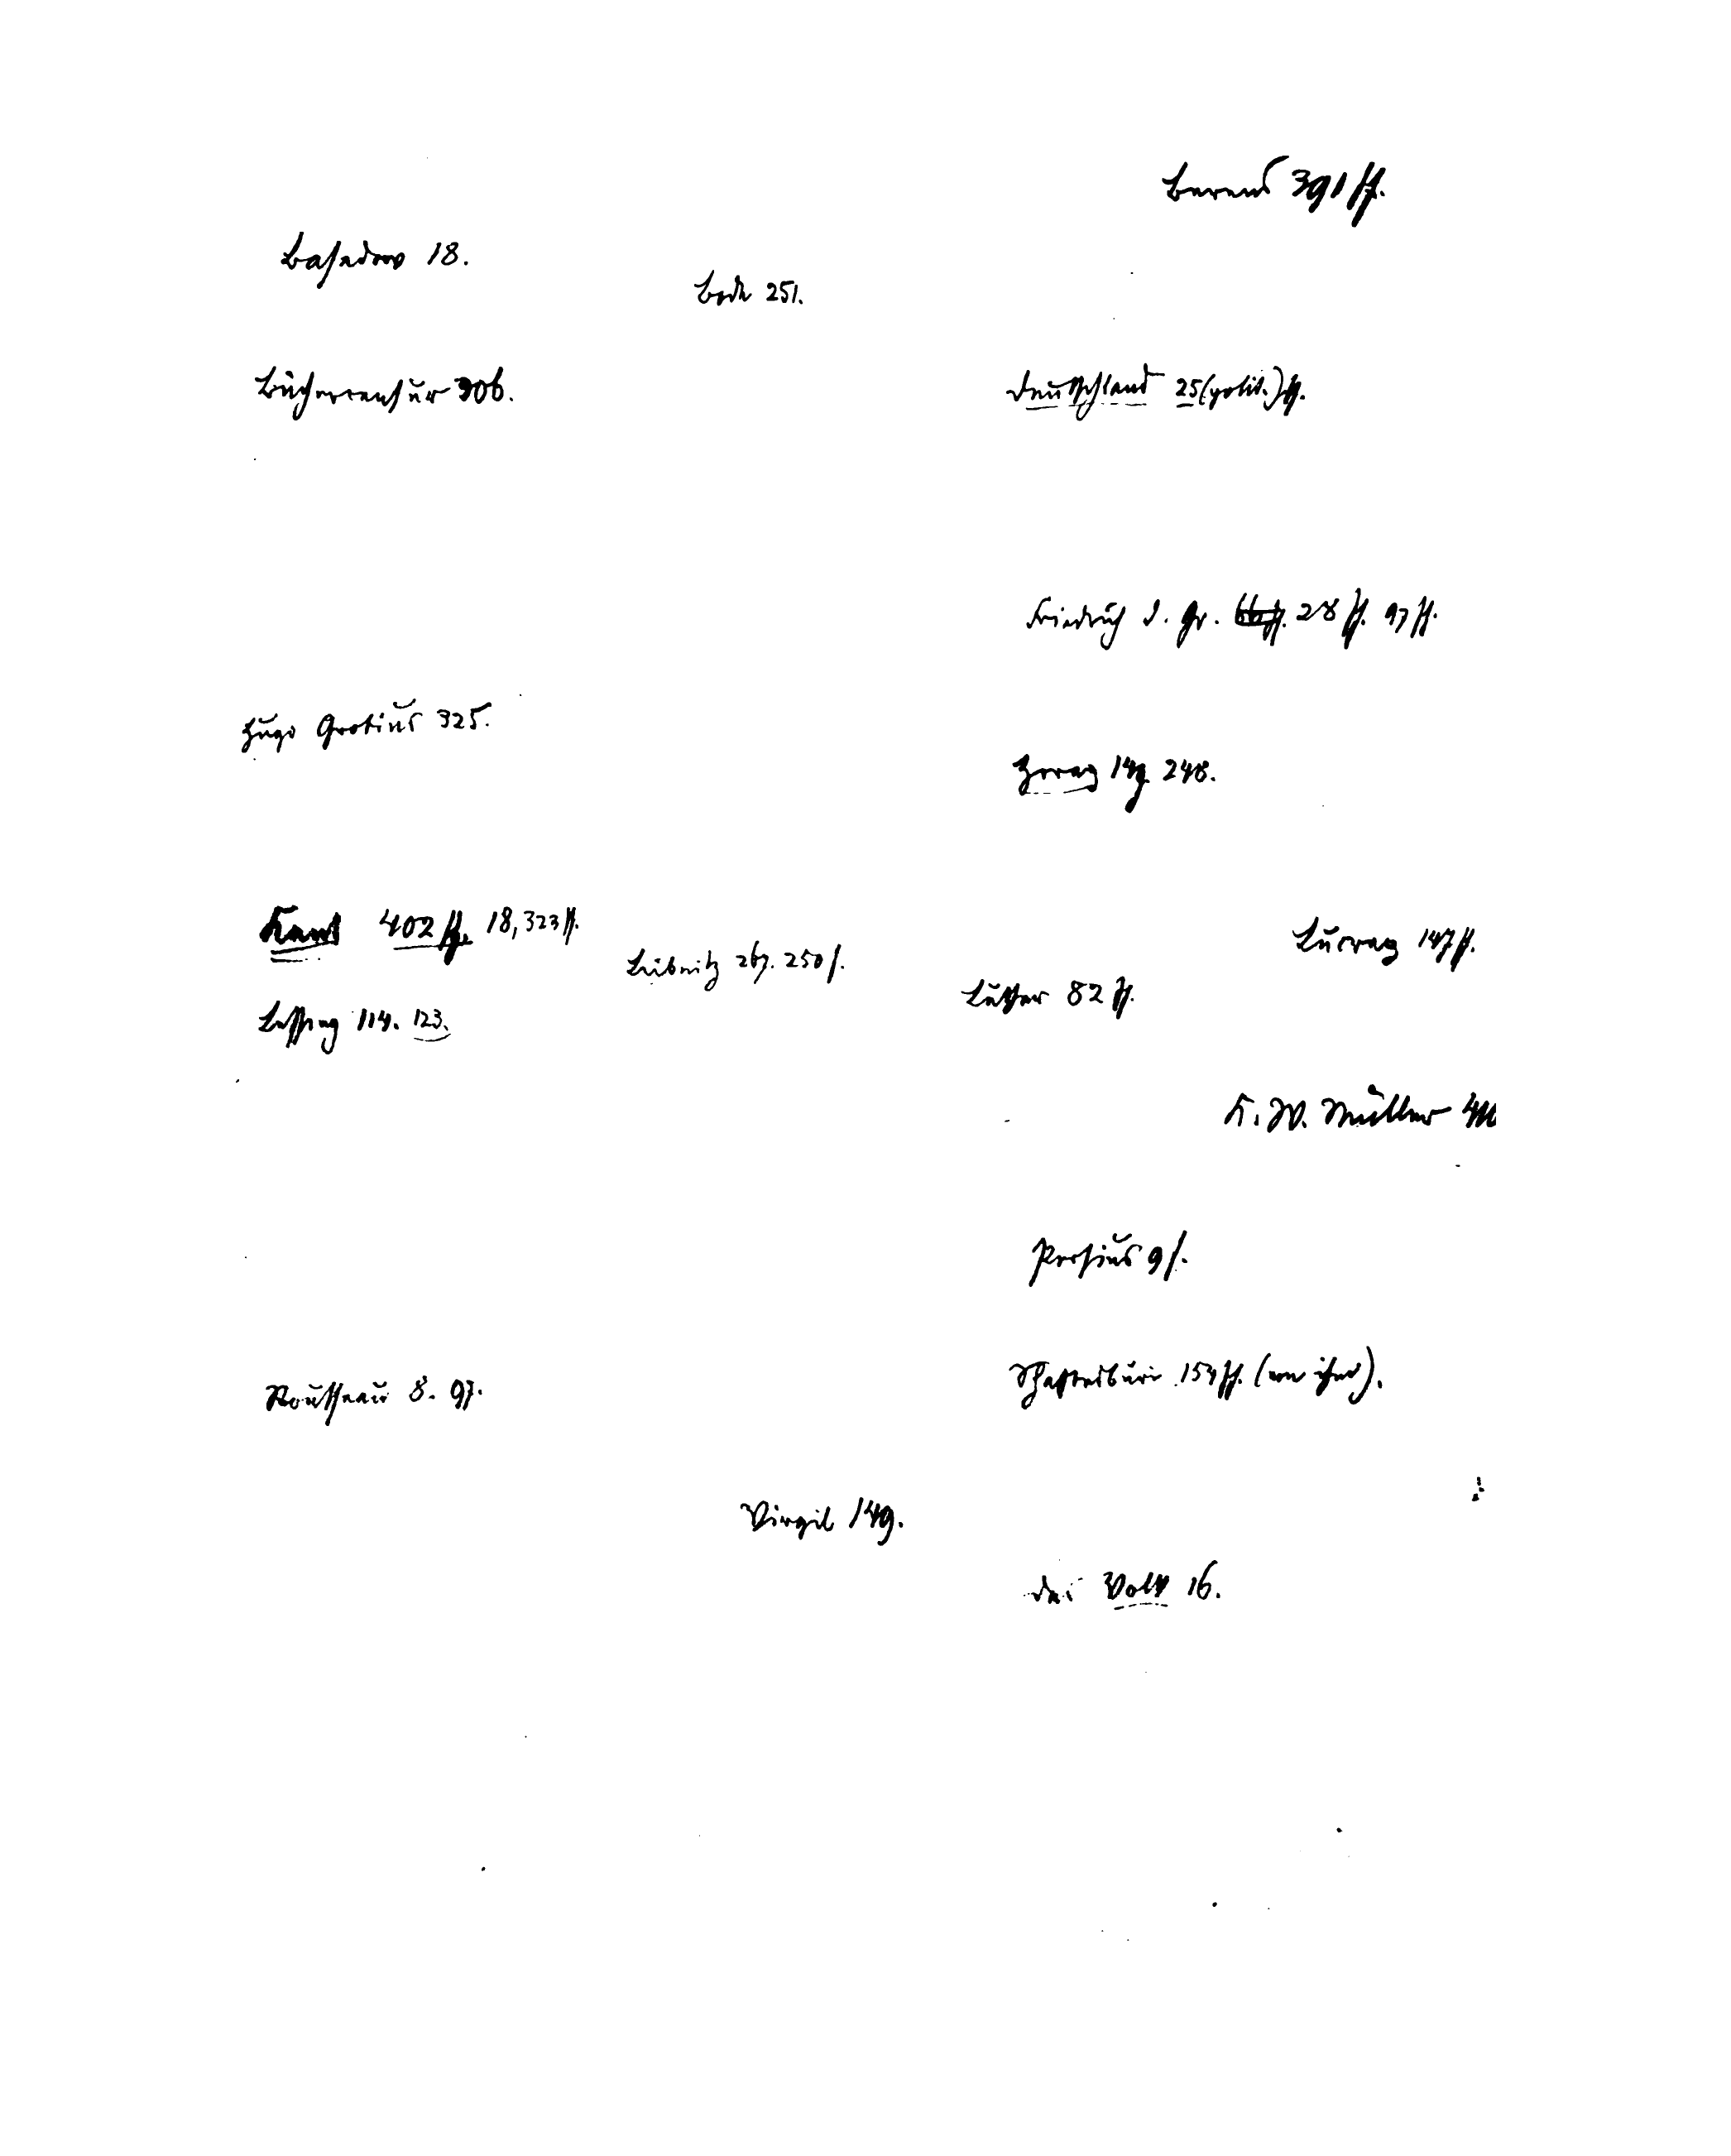 Berens 391 ff.
Basedow 18.
Bode 251.
Büchercensur 306.
Deutschland 25 (polit.) ff.
Friedrich d. Gr. 28 ff. 97 ff.
Hugo Grotius 325.
Horaz 149. 248.
Kant 402 ff. 18, 323 ff.
Lucrez 147 ff.
Leibnitz 267. 250 f.
Luther 82 ff.
Lessing 114. 123.
K. W. Müller
Persius 9 f.
Shaftesburi 154 ff. (von ihm).
Rousseau 8. 97.
Virgil 149.
das Volk 16.